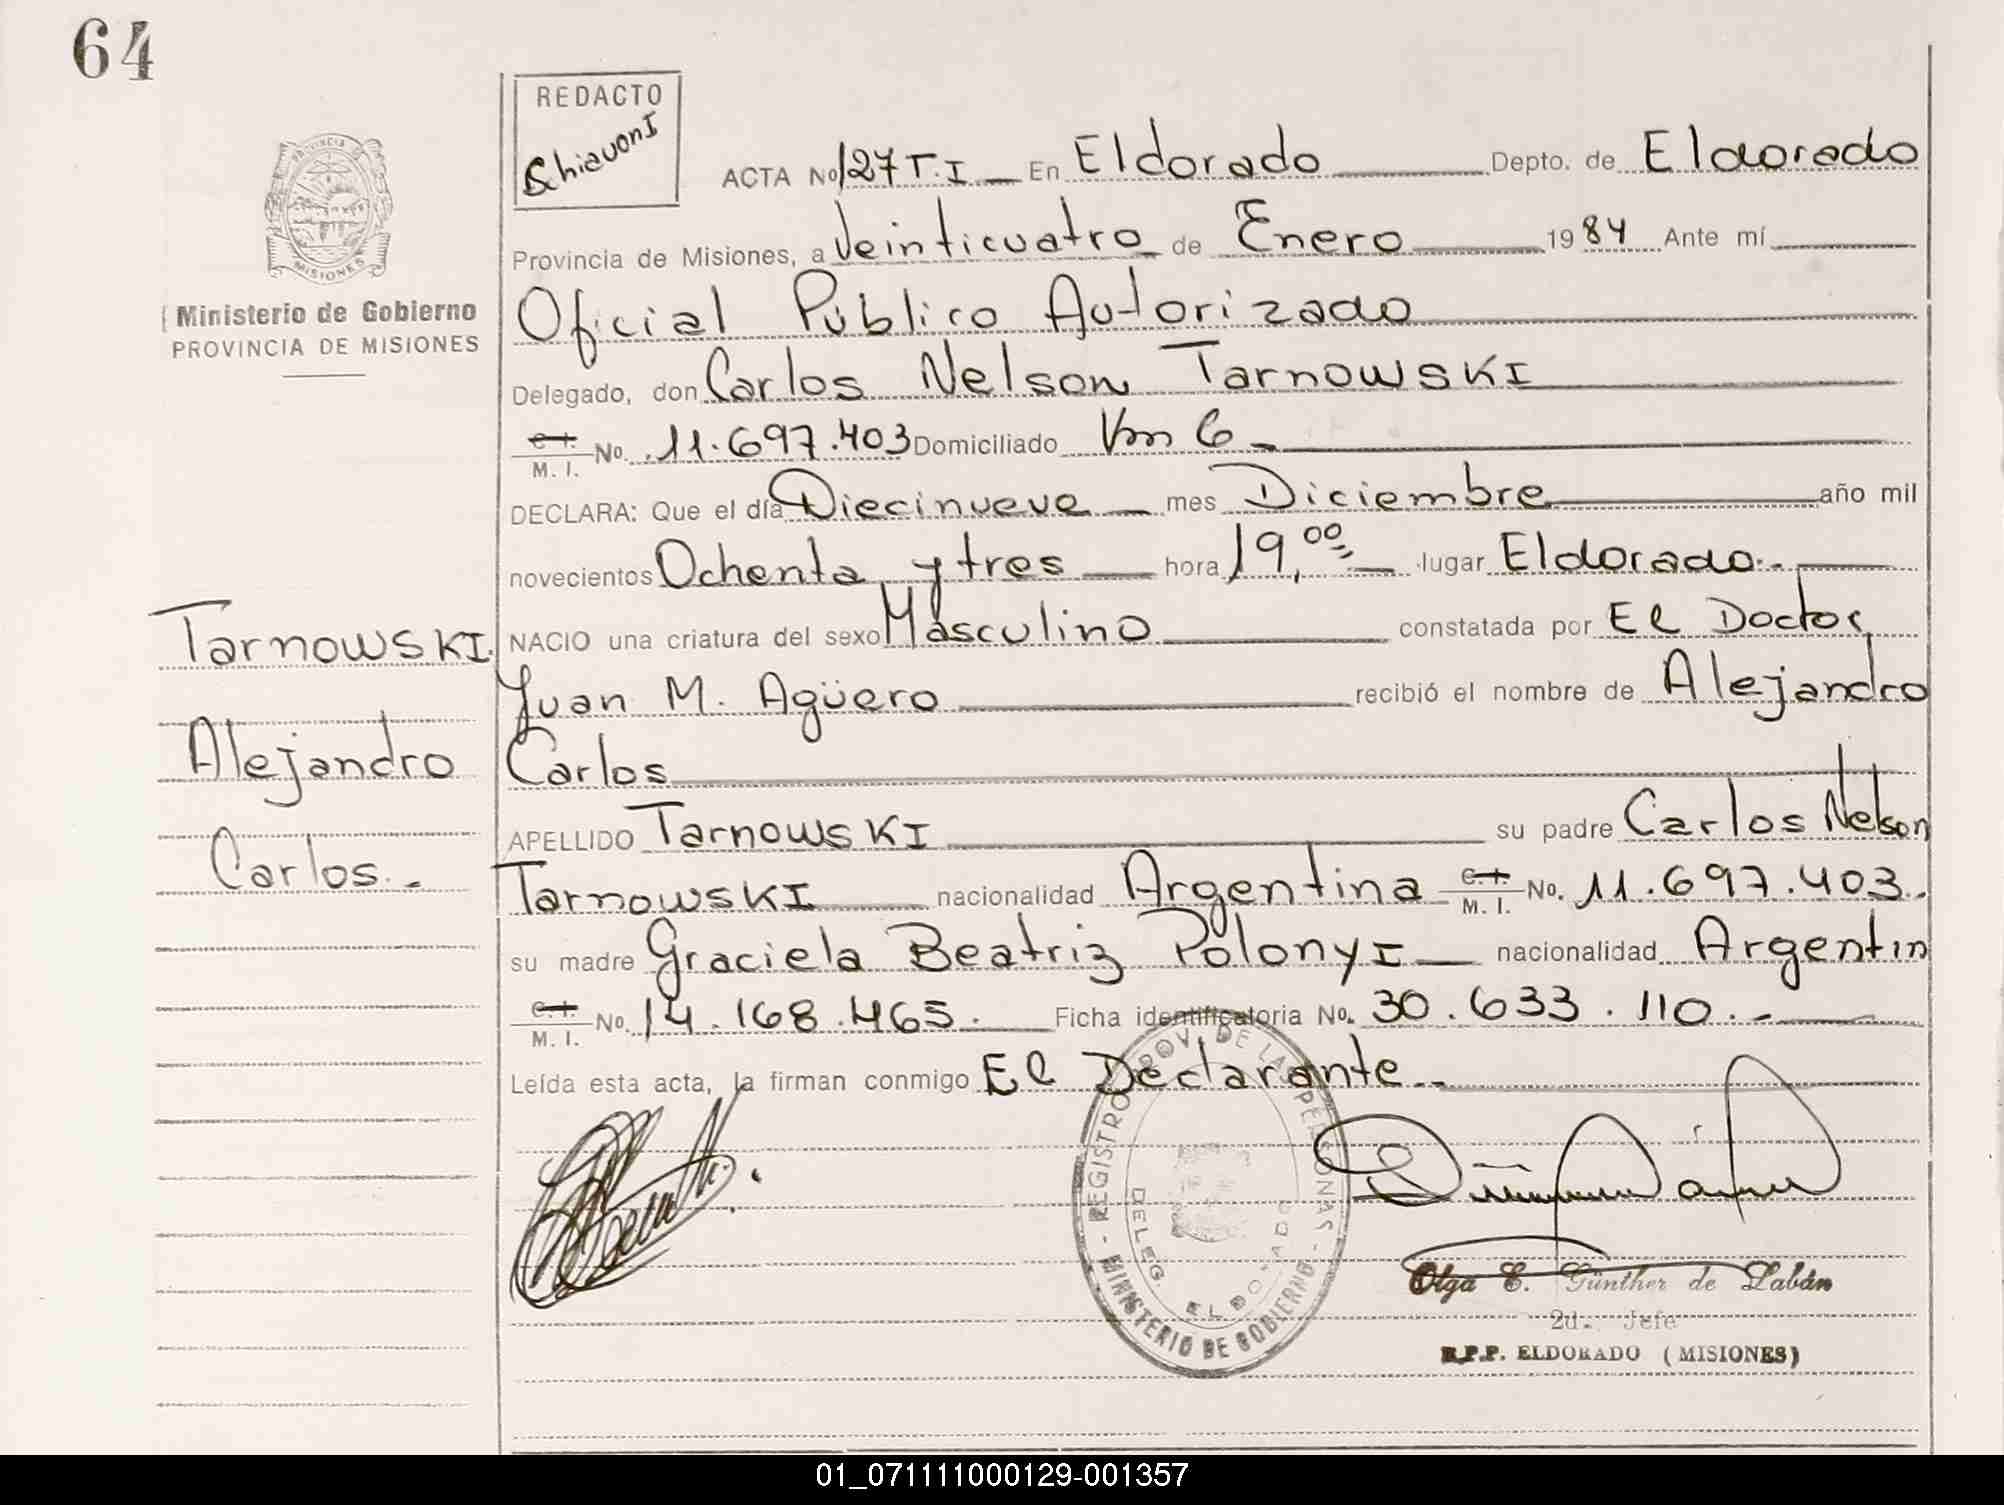 64
REDACTO
Schiavoni
ACTA No 127 T.I En Eldorado Depto. de Eldorado
Provincia de Misiones, a Veinticuatro de Enero 1984 Ante mí
PROVINCIA DE
MISIONES
Ministerio de Gobierno
PROVINCIA DE MISIONES
Oficial Público Autorizado
Delegado, don Carlos Nelson Tarnowski
C. I.
M. I. No. 11.697.403 Domiciliado Km 6
DECLARA: Que el día Diecinueve mes Diciembre año mil
novecientos Ochenta y tres hora 19,00 lugar Eldorado.
NACIO una criatura del sexo Masculino constatada por El Doctor
Juan M. Agüero recibió el nombre de Alejandro
Carlos
APELLIDO Tarnowski su padre Carlos Nelson
Tarnowski nacionalidad Argentina C. I.
M. I. No. 11.697.403.
su madre Graciela Beatriz Polonyi nacionalidad Argentin
C. I.
M. I. No. 14.168.465. Ficha identificatoria No. 30.633.110.-
Leída esta acta, la firman conmigo El Declarante.-
Tarnowski.
Alejandro
Carlos.-
REGISTRO PROV. DE LAS PERSONAS - MINISTERIO DE GOBIERNO -
DELEG ELDORADO
Olga E. Günther de Labán
2d. Jefe
R.P.P. ELDORADO (MISIONES)
01_071111000129-001357